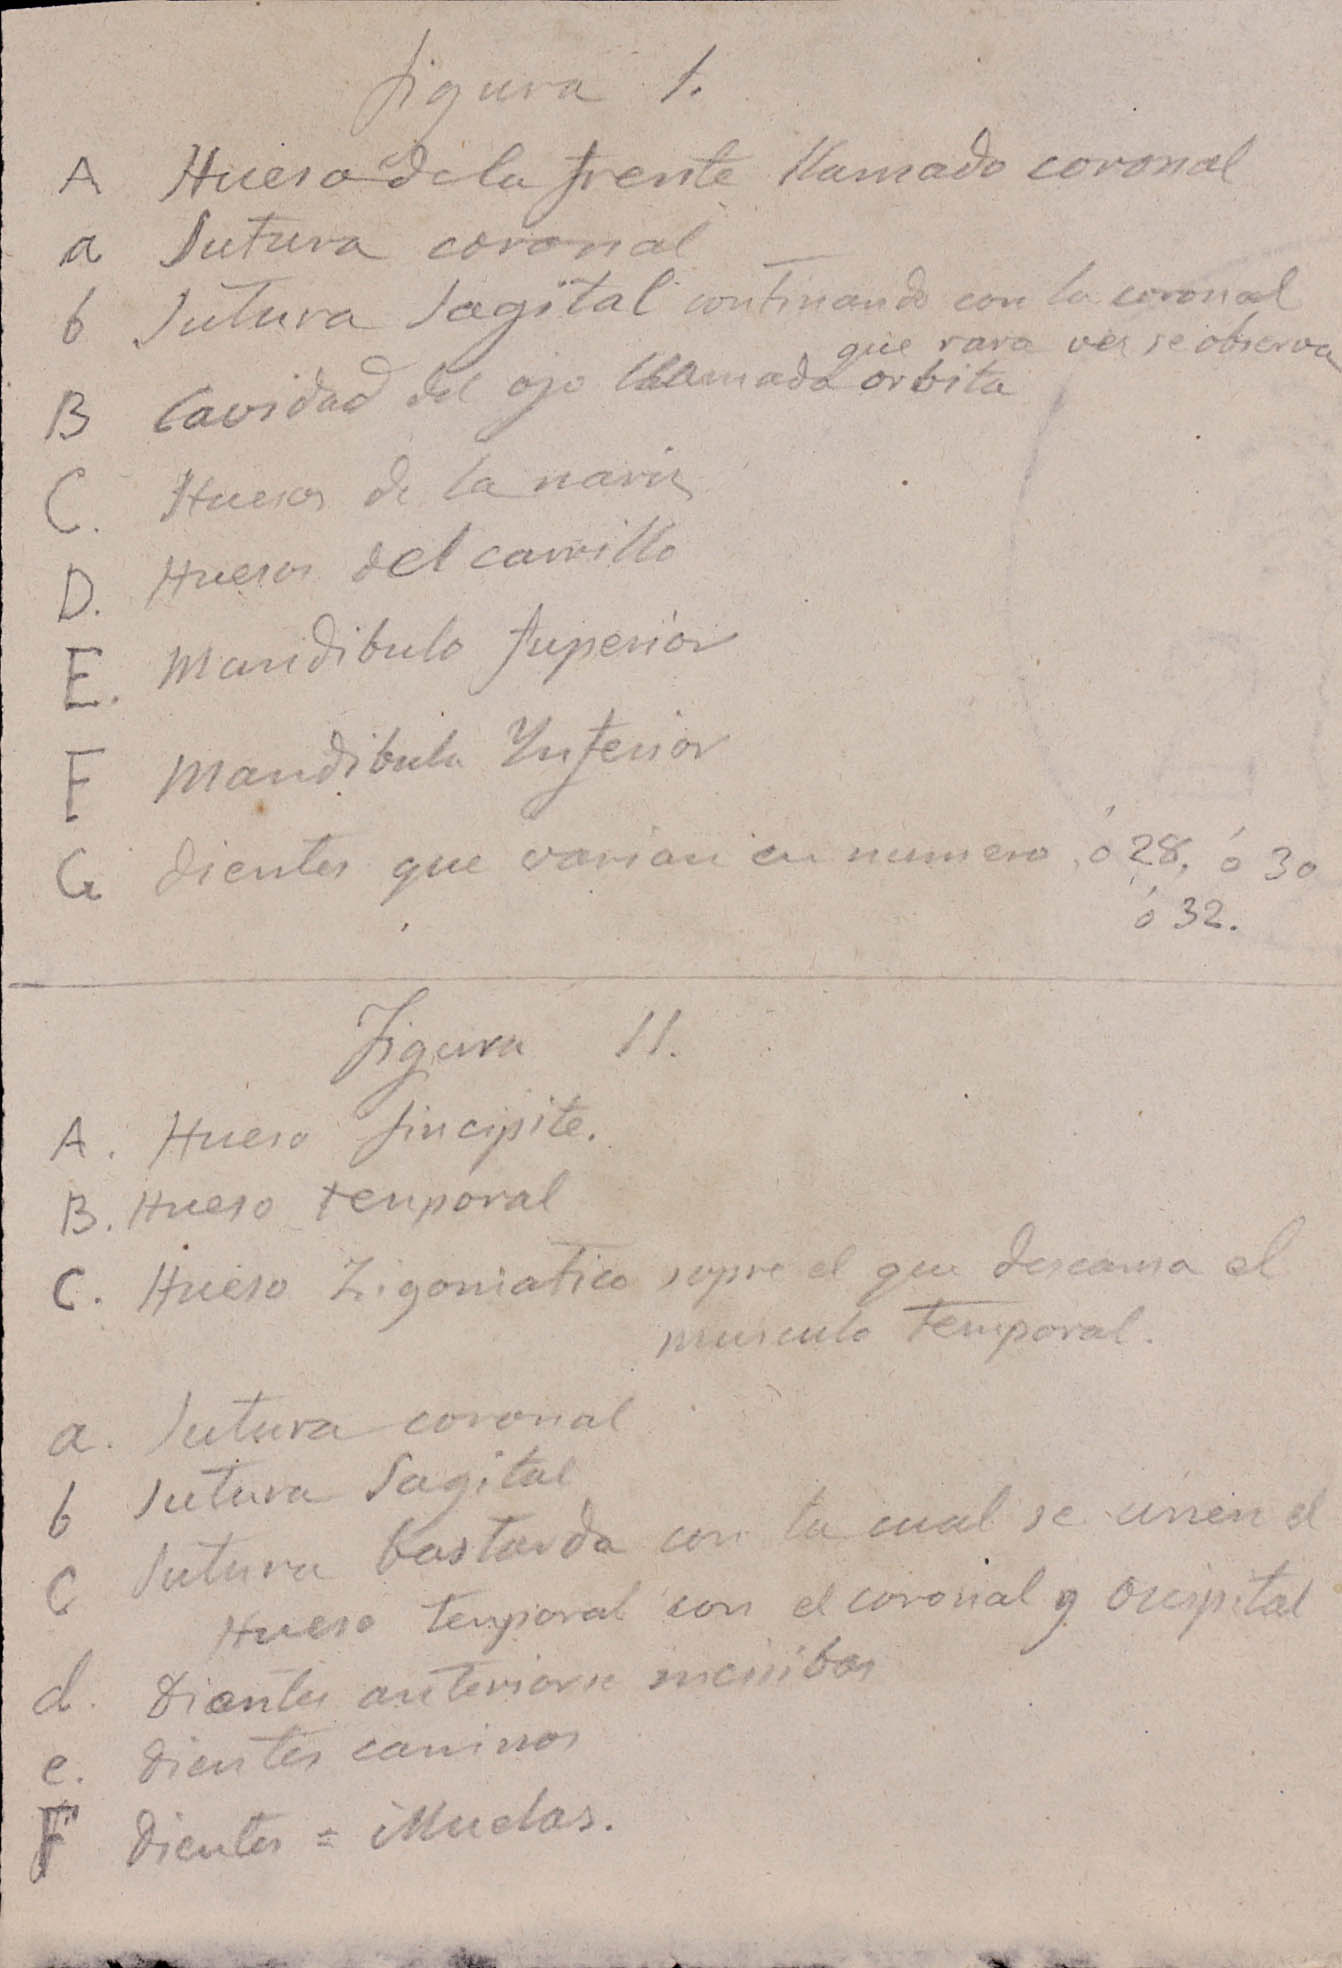 Figura 1.
A Hueso de la frente llamado coronal
a Sutura coronal
b Sutura Sagital continando con la coronal
que rara vez se observa
B Cavidad del ojo llamada orbita
C. Huesos de la nariz
D. Huesos del carrillo
E. Mandibulo Superior
F Mandibula Ynferior
G dientes que varian en numero, ó 28, ó 30
ó 32.
Figura 11.
A. Hueso Sincipite.
B. Hueso temporal
C. Hueso Zigomatico sopre el que descansa el
musculo temporal.
a. Sutura coronal
b Sutura Sagital
C Sutura bastarda con la cual se unen el
Hueso temporal con el coronal y Occipital
d. Dientes anteriorse incisibos
e. dientes caninos
F Dientes = Muelas.